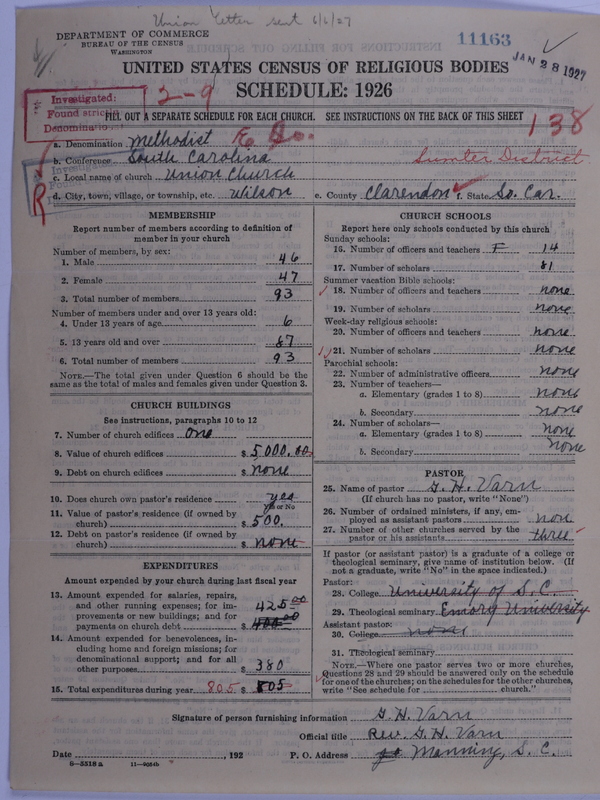 Union letter sent 6/6/27
DEPARTMENT OF COMMERCE
BUREAU OF THE CENSUS
WASHINGTON
11163
JAN 28 1927
UNITED STATES CENSUS OF RELIGIOUS BODIES
SCHEDULE: 1926
Investigated:
Found strictly
Denominational
2-9
FILL OUT A SEPARATE SCHEDULE FOR EACH CHURCH. SEE INSTRUCTIONS ON THE BACK OF THIS SHEET
138
a. Denomination Methodist E. So.
b. Conference South Carolina
Sumter District
c. Local name of church Union Church
R
d. City, town, village, or township, etc. Wilson e. County Clarendon f. State So. Car.
MEMBERSHIP
Report number of members according to definition of
member in your church
Number of members, by sex:
1. Male 46
2. Female 47
3. Total number of members 93
Number of members under and over 13 years old:
4. Under 13 years of age 6
5. 13 years old and over 87
6. Total number of members 93
NOTE.—The total given under Question 6 should be the
same as the total of males and females given under Question 3.
CHURCH BUILDINGS
See instructions, paragraphs 10 to 12
7. Number of church edifices One
8. Value of church edifices $ 5,000.00
9. Debt on church edifices $ None
10. Does church own pastor's residence yes
Yes or No
11. Value of pastor's residence (if owned by
church) $ 500.
12. Debt on pastor's residence (if owned by
church) $ None
EXPENDITURES
Amount expended by your church during last fiscal year
13. Amount expended for salaries, repairs,
and other running expenses; for im-
provements or new buildings; and for
payments on church debt $ 425.00
14. Amount expended for benevolences, in-
cluding home and foreign missions; for
denominational support; and for all
other purposes $ 380
15. Total expenditures during year 805 $ 805
CHURCH SCHOOLS
Report here only schools conducted by this church
Sunday schools:
16. Number of officers and teachers F 14
17. Number of scholars 81
Summer vacation Bible schools:
18. Number of officers and teachers none
19. Number of scholars none
Week-day religious schools:
20. Number of officers and teachers none
21. Number of scholars none
Parochial schools:
22. Number of administrative officers none
23. Number of teachers—
a. Elementary (grades 1 to 8) none
b. Secondary none
24. Number of scholars—
a. Elementary (grades 1 to 8) none
b. Secondary none
PASTOR
25. Name of pastor G. H. Varn
(If church has no pastor, write "None")
26. Number of ordained ministers, if any, em-
ployed as assistant pastors non
27. Number of other churches served by the
pastor or his assistants three
If pastor (or assistant pastor) is a graduate of a college or
theological seminary, give name of institution below. (If
not a graduate, write "No" in the space indicated.)
Pastor:
28. College University of S. C.
29. Theological seminary Emory University
Assistant pastor:
30. College none
31. Theological seminary
NOTE.—Where one pastor serves two or more churches,
Questions 28 and 29 should be answered only on the schedule
for one of the churches; on the schedules for the other churches,
write "See schedule for church."
Signature of person furnishing information G. H. Varn
Official title Rev. G. H. Varn
Date , 192 P. O. Address Manning, S. C.
6-5318a 11-9054b